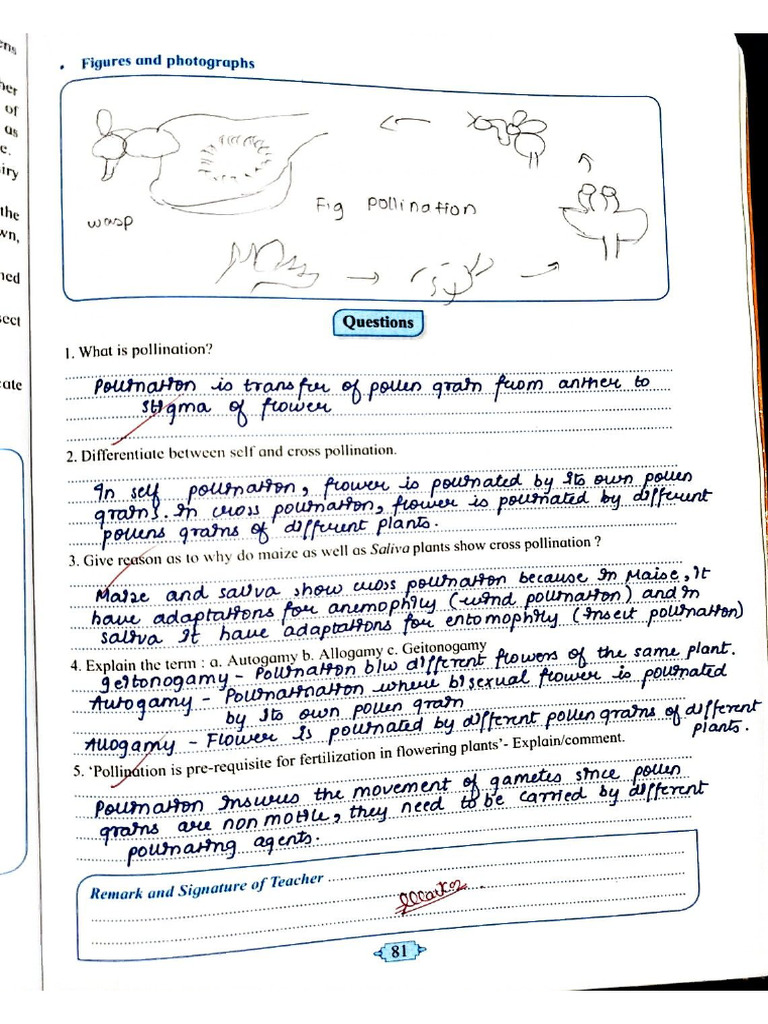 ens
her
of
as
e.
iry
the
wn,
ned
sect
cate
• Figures and photographs
wasp
Fig pollination
Questions
1. What is pollination?
Pollination is transfer of pollen grain from anther to
stigma of flower
2. Differentiate between self and cross pollination.
In self pollination, flower is pollinated by its own pollen
grains. In cross pollination, flower is pollinated by different
pollens grains of different plants.
3. Give reason as to why do maize as well as Saliva plants show cross pollination ?
Maize and saliva show cross pollination because in Maise, it
have adaptations for anemophily (wind pollination) and in
saliva it have adaptations for entomophily (insect pollination)
4. Explain the term : a. Autogamy b. Allogamy c. Geitonogamy
Geitonogamy - Pollination b/w different flowers of the same plant.
Autogamy - Pollinatination where bisexual flower is pollinated
by its own pollen grain
Allogamy - Flower is pollinated by different pollen grains of different
plants.
5. ‘Pollination is pre-requisite for fertilization in flowering plants’- Explain/comment.
Pollination insures the movement of gametes since pollen
grains are non motile, they need to be carried by different
pollinating agents.
Remark and Signature of Teacher
81